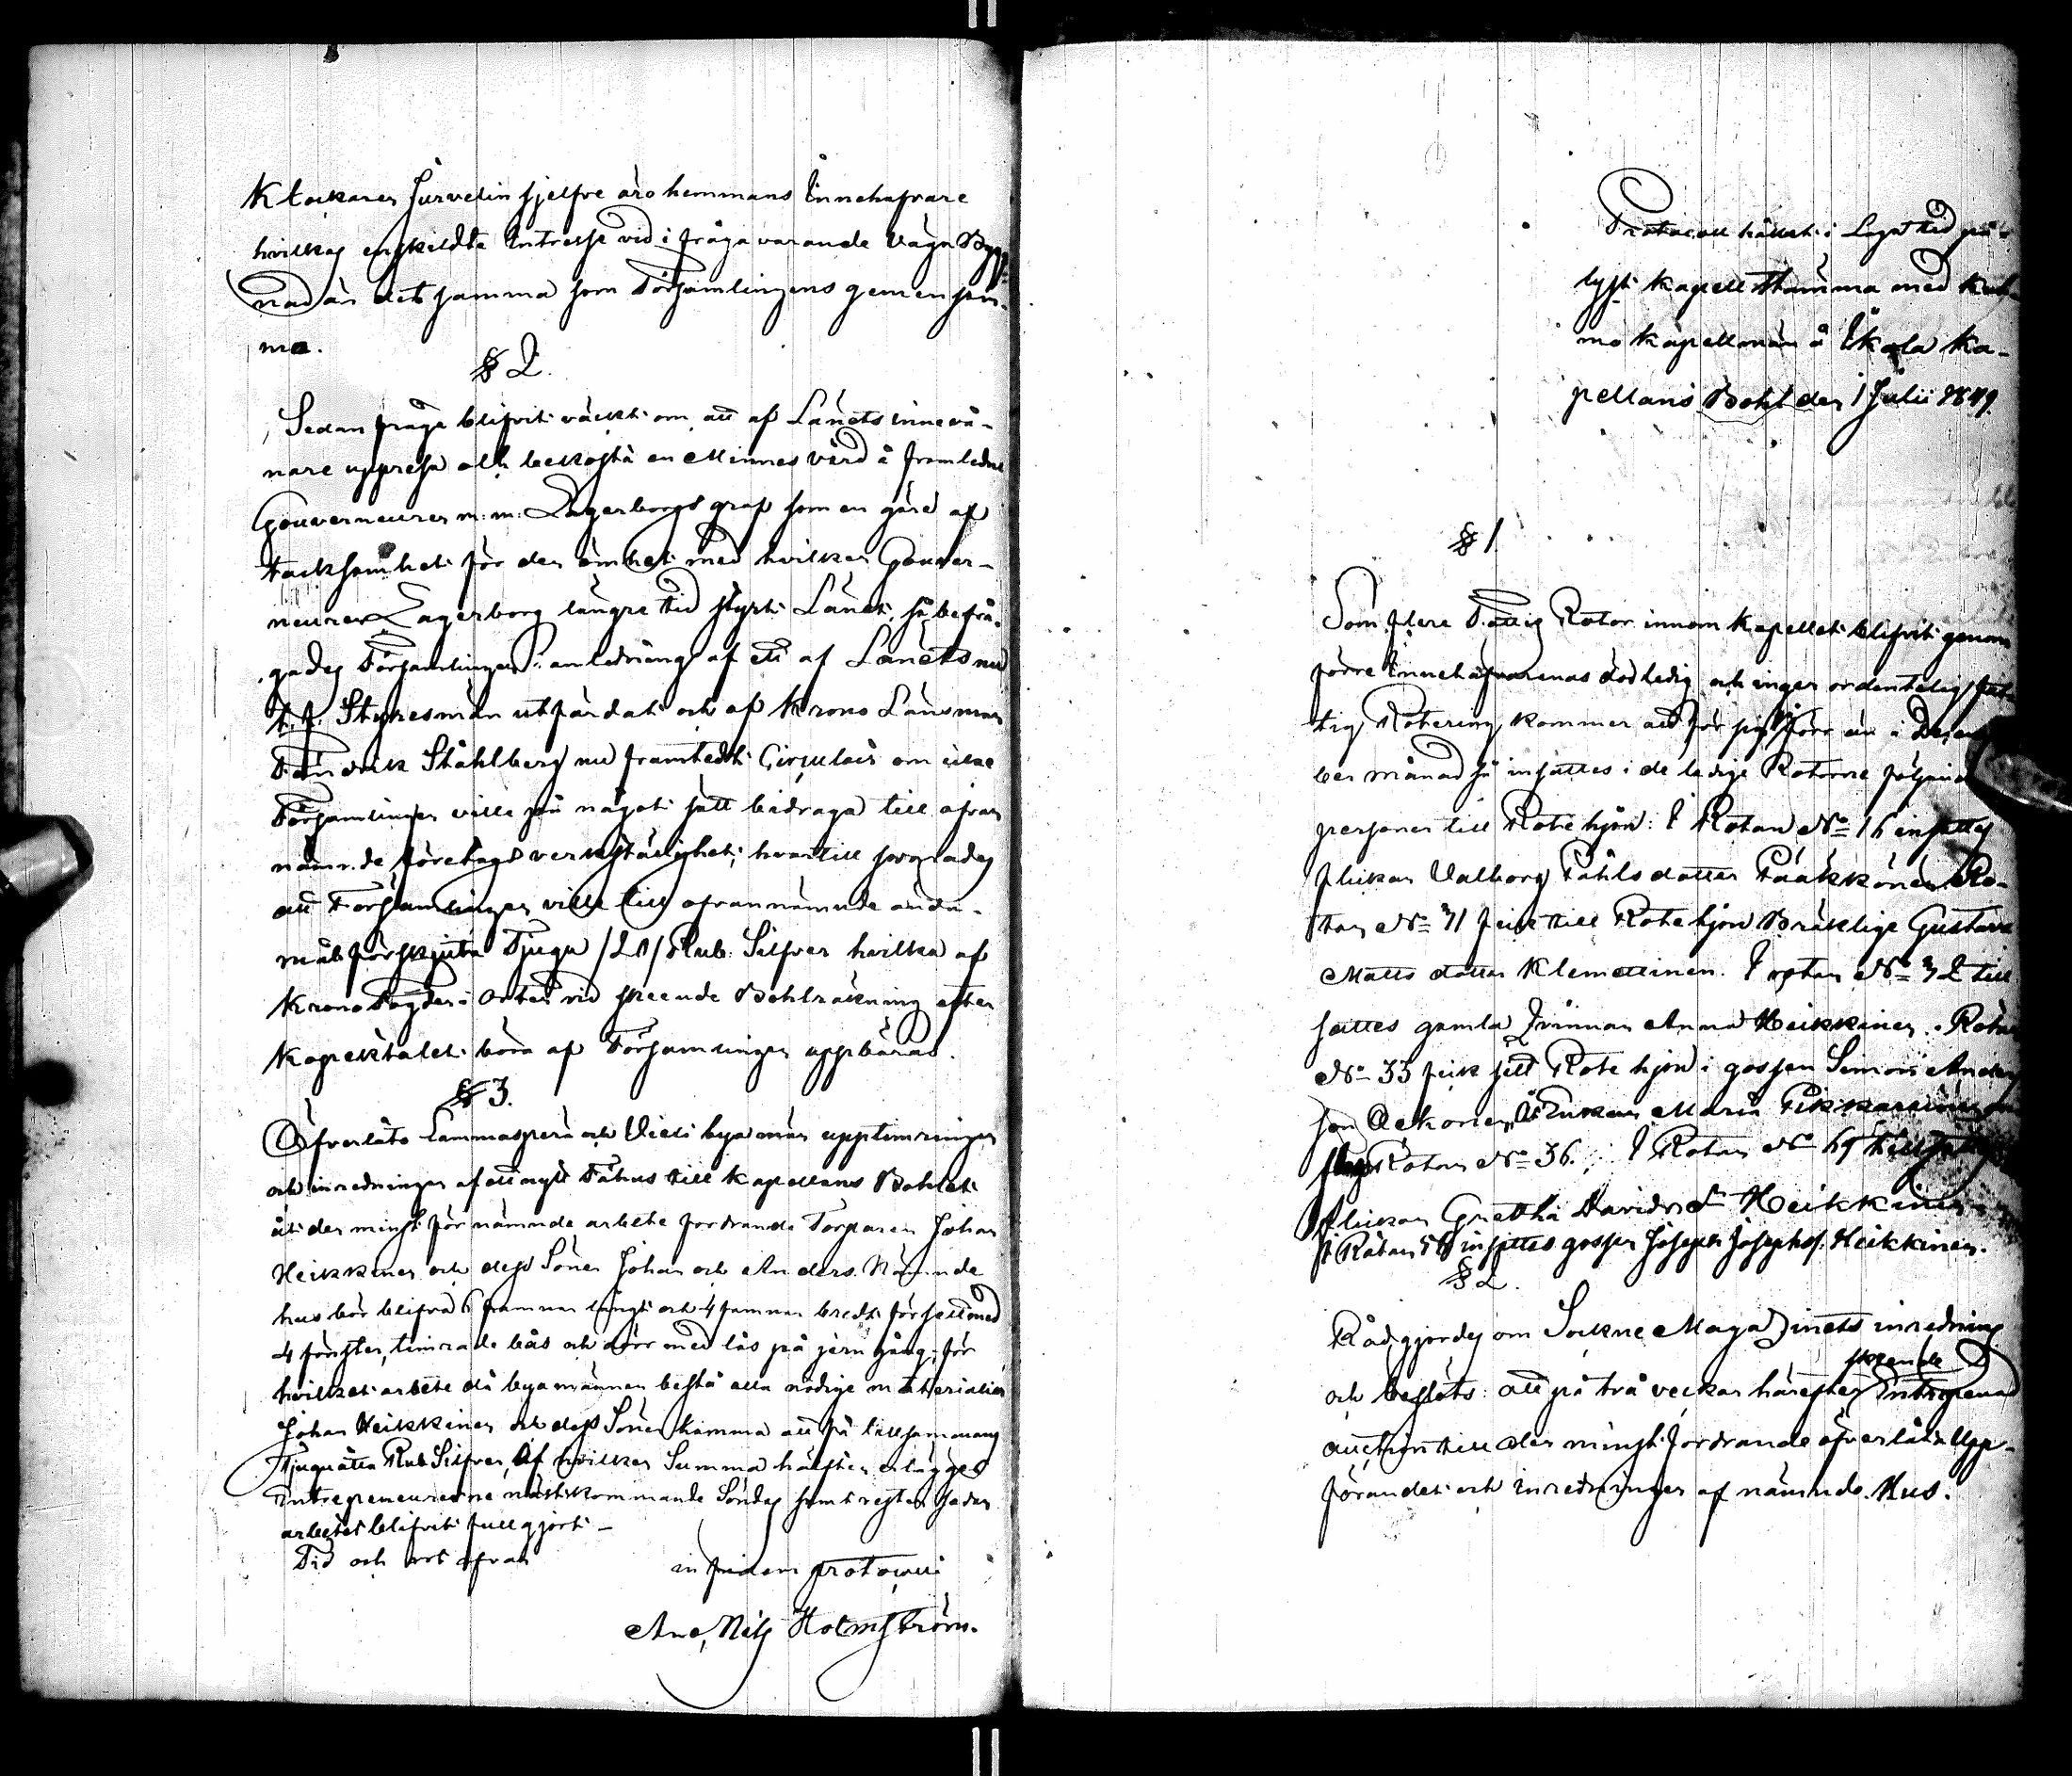 Klockaren Järvelin sjelfve äro hemmans Innehafvare
hvilkas enskildta Intresse vid i fråga varande Vägabygg-
nad är det samma som Församlingens gemensam-
ma.
§ 2.
Sedan fråga blifvit väckt om att af Länets innevå-
nare uppresa och bekosta en Minnes vård å framledne
Gouverneuren m: m: Lagerborgs graf som en gärd af
tacksamhet för den ömhet med hvilken Gouver-
neuren Lagerborg längre tid styrt Länet, så befrå-
gades Församlingen i anledning af ett af Länets nu
t. f. Styresmän utfärdat och af Krono Länsman
Fändrik Ståhlberg nu framtedt Circulair om icke
Församlingen ville på något sätt bidraga till ofvan
nämnde företags verkställighet; hvartill svarades
att Församlingen ville till ofvannämnde ända-
mål förskjuta Tjugu /20/ Rub: Silfver hvilka af
Krono Fogden i Orten vid skeende Bohlräkning efter
Kopektalet böra af Församlingen uppbäras.
§ 3.
Öfverläts Lammasperä och Vieki byamän upptimringen
och inredningen af ett nytt Fähus till Kapellans Bohlet
åt den minst för nämnde arbete fordrande Torparen Johan
Heikkinen och dess Söner Johan och Anders. Nämnde
hus bör blifva 6 famnar långt och 4 famnar bredt försedt med
4 fönster, timrade bås och dörr med lås på jern gång; för
hvilket arbete då byamännen bestå alla nödige materialier
Johan Heikkinen och dess Söner komma att få tillsammans
Tjuguåtta Rub Silfver, Af hvilken Summa hälften erlägges
Entrepreneurerne nästkommande Söndag samt resten sedan
arbetet blifvit fullgjort –
Tid och ort ofvan
in fidem protocolli
And. Nils Holmström.
Protocoll hållet i Lagl: tid på-
lyst Kapell Stämma med Kuh-
mo Kapellmän å Ekola Ka-
pellans Bohl den 1 Julii 1849.
§ 1.
Som flere Fattig Rotor innom Kapellet blifvit genom
förre Innehafvarenas död ledig och ingen ordentelig Fat-
tig Rotering kommer att för sig gå förr än i Decem-
ber månad så insattes i de ledige Rotorne följande
personer till Rotehjon: I Rotan No 16 insattes
flickan Valborg Påhlsdotter Pääkkönen. Ro-
tan No 31 fick till Rotehjon Bräklige Gustava
Matts dotter Klemettinen. I rotan No 32 till
sattes gamla Qvinnan Anna Heikkinen. Rotan
No 33 fick till Rotehjon gossen Simon Anders
son Ockonen, Enkan Maria Pikkarainen
Rotan No 36. I Rotan No 49 tillsattes
flickan Gretha Davidsdr Heikkinen
I Rotan 56 insattes gossen Joseph Josephs. Heikkinen.
§ 2.
Rådgjordes om Sockne Magazinets inredning
och beslöts: att på två veckor härefter skeende Entreprenad
auction till den minst fordrande öfverlåta Upp-
förandet och inredningen af nämnde Hus.